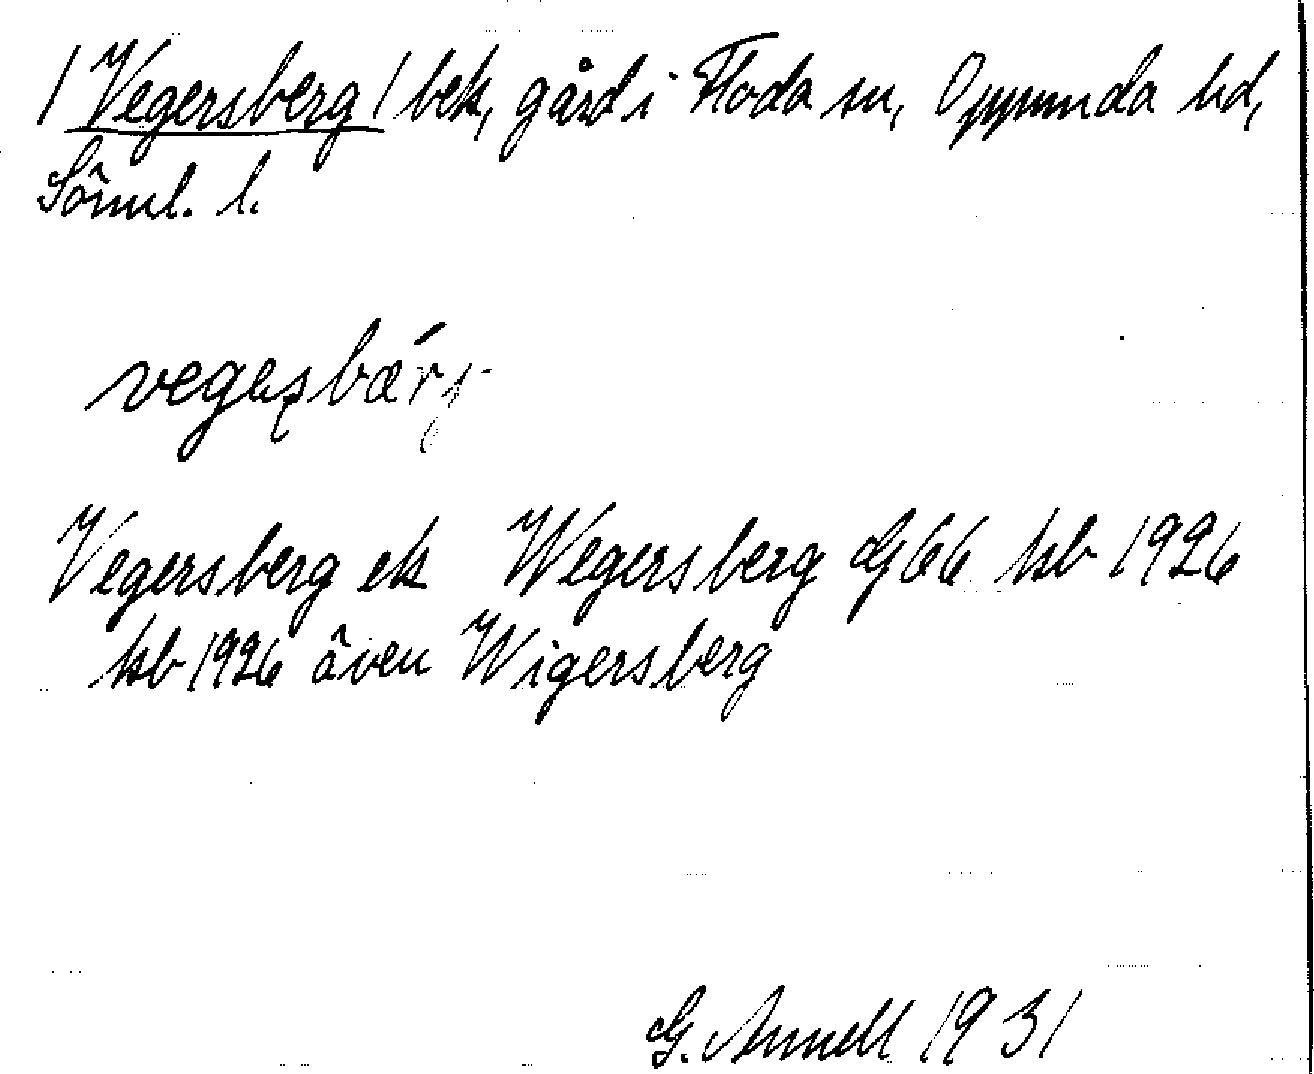 / Vegersberg / bek, gård i Floda sn, Oppunda hd,
Sörml. l.
vegeʂbærj
Vegersberg ek Wegersberg Gj 66 hsb 1926
hsb 1926 även Wigersberg
G. Annell 1931